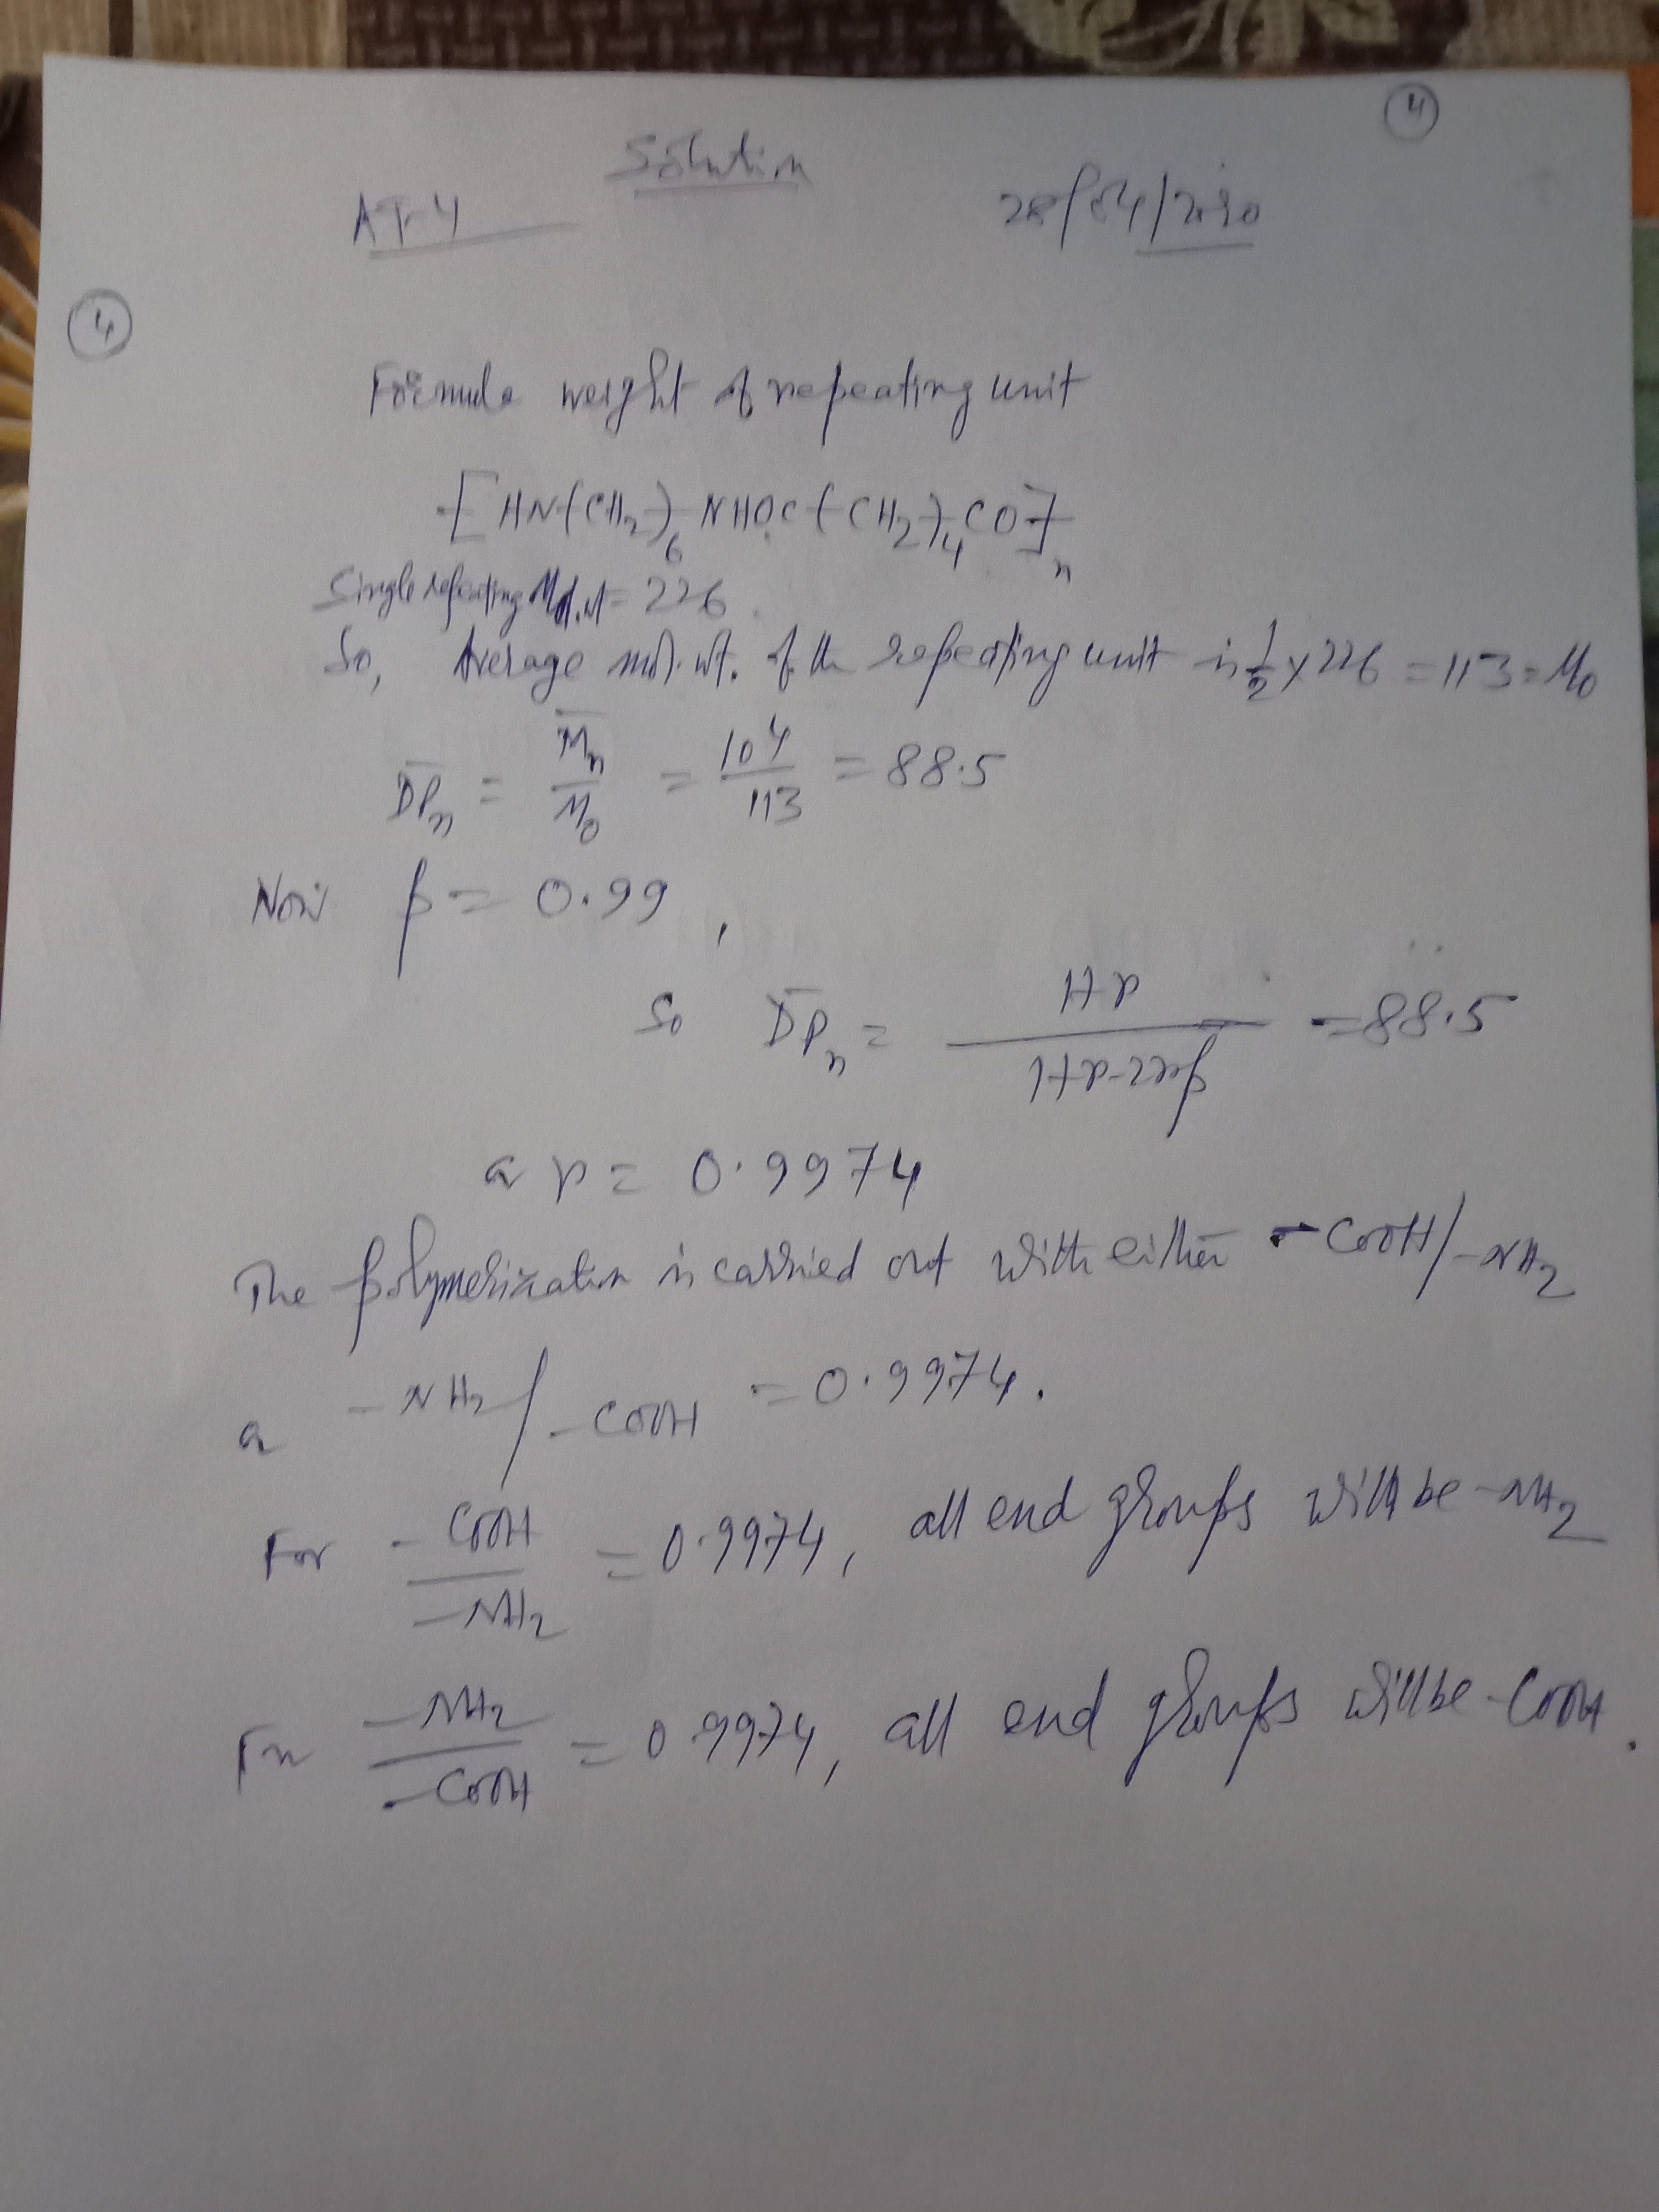 4
Solution
AT-4
28/04/2020
4
Formula weight of repeating unit
-[HN-(CH2)6-NHOC-(CH2)4CO-]n
Single repeating Mol.wt = 226.
So, Average mol. wt. of the repeating unit is 1/2 × 226 = 113 = M0
DPn = Mn/M0 = 10^4/113 = 88.5
Now p = 0.99,
So DPn = 1+r/1+r-2rp = 88.5
or r = 0.9974
The polymerization is carried out with either -COOH/-NH2
or -NH2/-COOH = 0.9974.
For -COOH/-NH2 = 0.9974, all end groups will be -NH2
For -NH2/-COOH = 0.9974, all end groups will be -COOH.